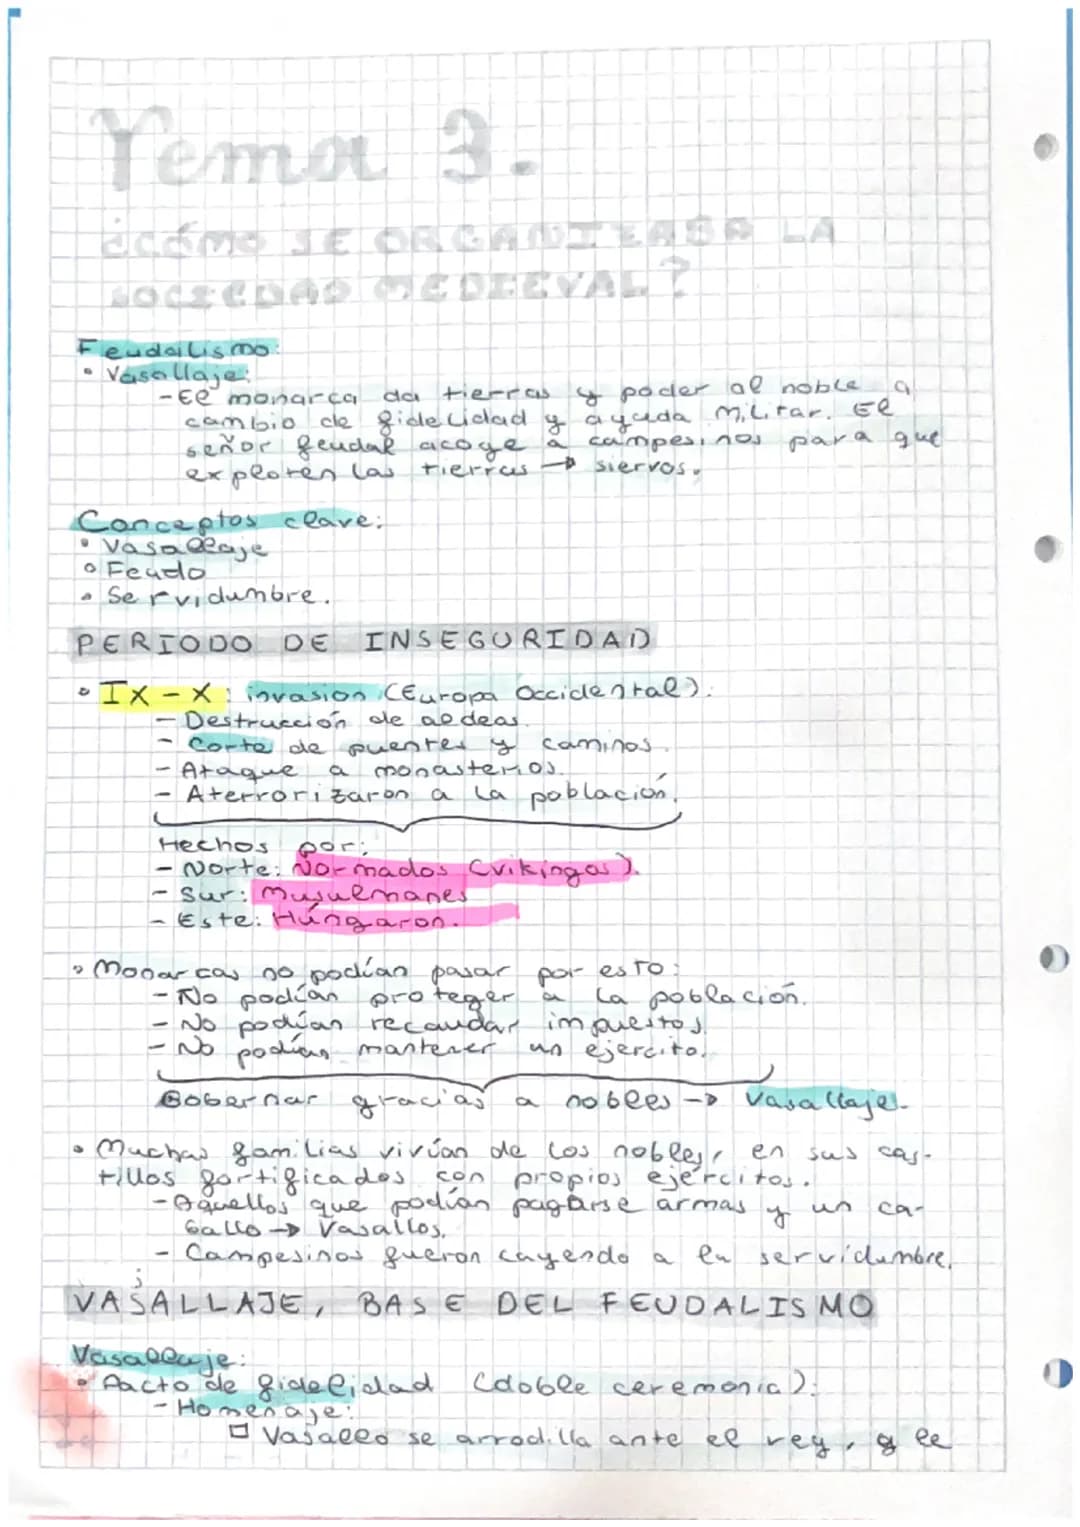 Tema 3.
¿CÓMO SE ORGANIZABA LA
SOCIEDAD MEDIEVAL?
Feudalismo:
• Vasallaje:
-El monarca da tierras y poder al noble a
cambio de fidelidad y ayuda militar. El
señor feudal acoge a campesinos para que
exploten las tierras → siervos.
Conceptos clave:
• Vasallaje
• Feudo
• Servidumbre.
PERIODO DE INSEGURIDAD
• IX - X: invasion (Europa Occidental):
- Destrucción de aldeas.
- Corte de puentes y caminos.
- Ataque a monasterios.
- Aterrorizaron a la población.
Hechos por:
- Norte: Normados (vikingos).
- Sur: Musulmanes
- Este: Húngaron.
• Monarcas no podían pasar por esto:
- No podían proteger a la población.
- No podían recaudar impuestos.
- No podían mantener un ejercito.
Gobernar gracias a nobles → Vasallaje.
• Muchas familias vivían de los nobles, en sus cas-
tillos fortificados con propios ejércitos.
- Aquellos que podían pagarse armas y un ca-
ballo → Vasallos.
- Campesinos fueron cayendo a la servidumbre.
VASALLAJE, BASE DEL FEUDALISMO
Vasallaje:
• Pacto de fidelidad (doble ceremonia):
- Homenaje:
□ Vasallo se arrodilla ante el rey, y le